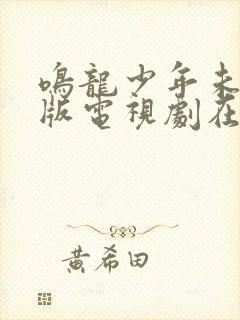 鳴龍少年未
版電視劇在
黃希田